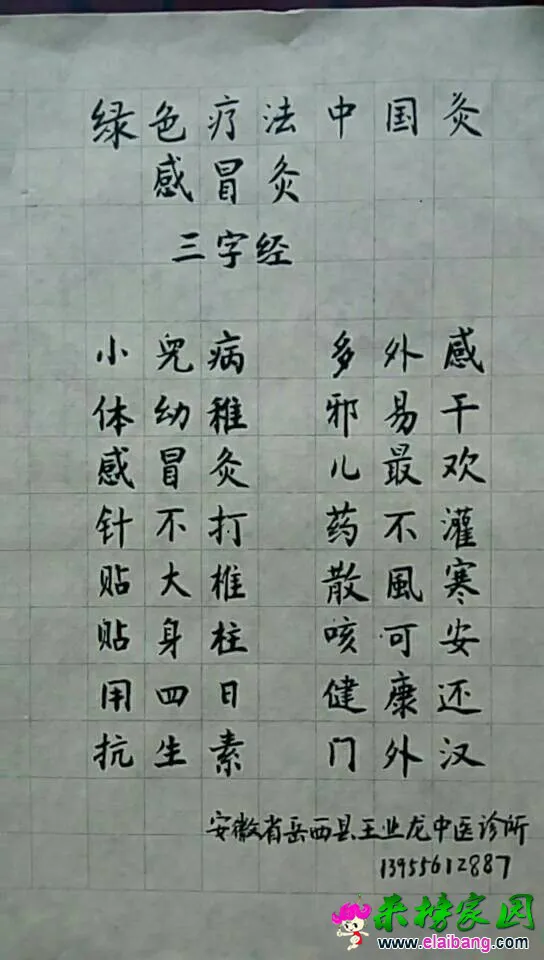 绿色疗法中国灸
感冒灸
三字经
小児病 多外感
体幼稚 邪易干
感冒灸 儿最欢
针不打 药不灌
贴大椎 散風寒
贴身柱 咳可安
用四日 健康还
抗生素 门外汉
安徽省岳西县王业龙中医诊所
13955612887
来榜家园
www.elaibang.com